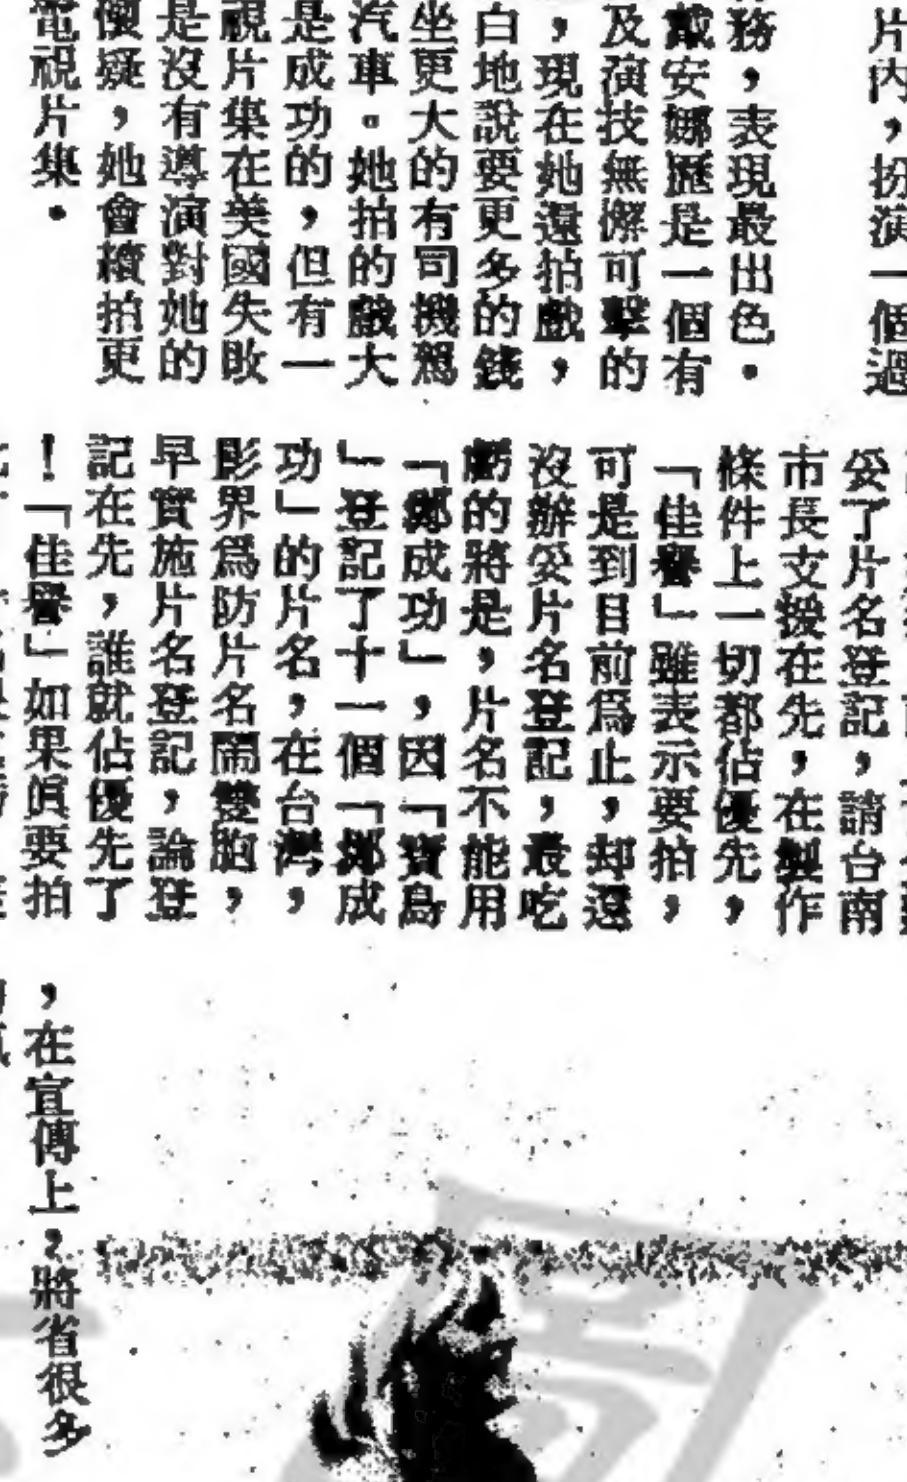 片內，扮演一個過
務，表現最出色。
戴安娜歷是一個有
及演技無懈可擊的
，現在她還拍戲，
白地說要更多的錢
坐更大的有司機駕
汽車。她拍的戲大
是成功的，但有一
視片集在美國失敗
是沒有導演對她的
懷疑，她會續拍更
電視片集。
妥了片名登記，請台南
市長支援在先，在製作
條件上一切都佔優先，
「佳譽」雖表示要拍，
可是到目前為止，却還
沒辦妥片名登記，最吃
虧的將是，片名不能用
「鄭成功」，因「寶島
」登記了十一個「鄭成
功」的片名，在台灣，
影界爲防片名鬧雙胞，
早實施片名登記，論登
記在先，誰就佔優先了
！「佳譽」如果眞要拍
，在宣傳上，將省很多
圖